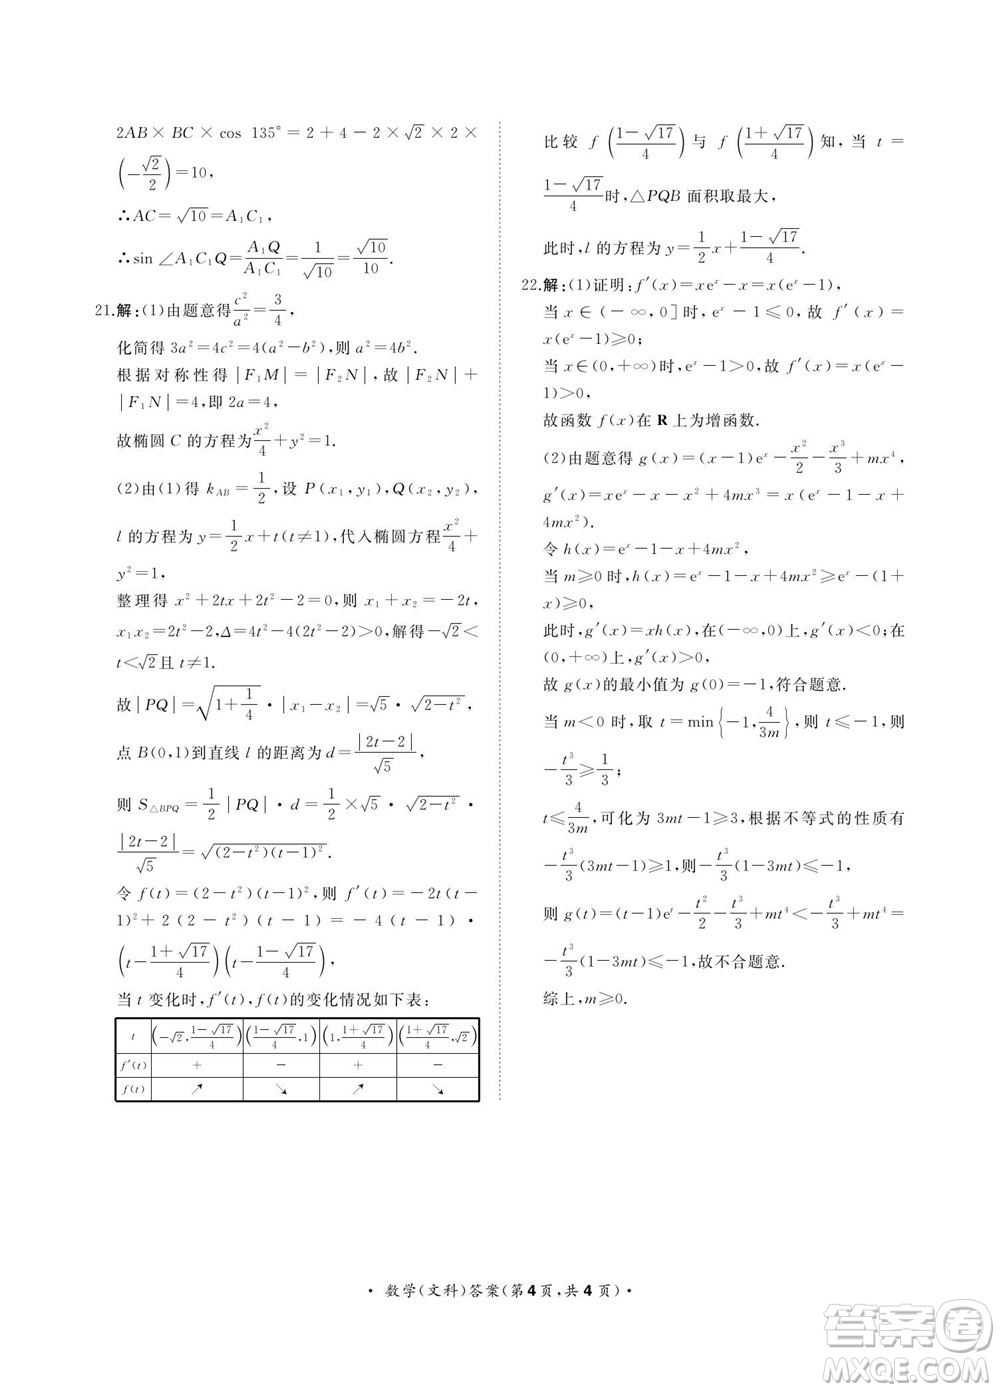 2AB×BC×cos 135°=2+4-2×√2×2×
(-√2/2)=10,
∴AC=√10=A₁C₁,
∴sin∠A₁C₁Q=A₁Q/A₁C₁=1/√10=√10/10.
21.解:(1)由题意得c²/a²=3/4,
化简得 3a²=4c²=4(a²-b²),则 a²=4b².
根据对称性得|F₁M|=|F₂N|,故|F₂N|+
|F₁N|=4,即 2a=4,
故椭圆 C 的方程为x²/4+y²=1.
(2)由(1)得 k_AB=1/2,设 P(x₁,y₁),Q(x₂,y₂),
l 的方程为 y=1/2x+t(t≠1),代入椭圆方程x²/4+
y²=1,
整理得 x²+2tx+2t²-2=0,则 x₁+x₂=-2t,
x₁x₂=2t²-2,Δ=4t²-4(2t²-2)>0,解得-√2<
t<√2且 t≠1.
故|PQ|=√(1+1/4)·|x₁-x₂|=√5·√(2-t²),
点 B(0,1)到直线 l 的距离为 d=|2t-2|/√5,
则 S△BPQ=1/2|PQ|·d=1/2×√5·√(2-t²)·
|2t-2|/√5=√((2-t²)(t-1)²).
令 f(t)=(2-t²)(t-1)²,则 f′(t)=-2t(t-
1)²+2(2-t²)(t-1)=-4(t-1)·
(t-(1+√17)/4)(t-(1-√17)/4),
当 t 变化时,f′(t),f(t)的变化情况如下表:
t (-√2,(1-√17)/4) ((1-√17)/4,1) (1,(1+√17)/4) ((1+√17)/4,√2)
f′(t) + - + -
f(t) ↗ ↘ ↗ ↘
比较 f((1-√17)/4)与 f((1+√17)/4)知,当 t=
(1-√17)/4时,△PQB 面积取最大,
此时,l 的方程为 y=1/2x+(1-√17)/4.
22.解:(1)证明:f′(x)=xeˣ-x=x(eˣ-1),
当 x∈(-∞,0]时,eˣ-1≤0,故 f′(x)=
x(eˣ-1)≥0;
当 x∈(0,+∞)时,eˣ-1>0,故 f′(x)=x(eˣ-
1)>0,
故函数 f(x)在 R 上为增函数.
(2)由题意得 g(x)=(x-1)eˣ-x²/2-x³/3+mx⁴,
g′(x)=xeˣ-x-x²+4mx³=x(eˣ-1-x+
4mx²).
令 h(x)=eˣ-1-x+4mx²,
当 m≥0 时,h(x)=eˣ-1-x+4mx²≥eˣ-1-
x≥0;
此时,g′(x)=xh(x),在(-∞,0)上,g′(x)<0;在
(0,+∞)上,g′(x)>0,
故 g(x)的最小值为 g(0)=-1,符合题意.
当 m<0 时,取 t=min{-1,4/3m},则 t≤-1,则
-t³/3≥1/3;
t≤4/3m,可化为 3mt-1≥3,根据不等式的性质有
-t³/3(3mt-1)≥1,则-t³/3(1-3mt)≤-1,
则 g(t)=(t-1)eᵗ-t²/2-t³/3+mt⁴<-t³/3+mt⁴=
-t³/3(1-3mt)≤-1,故不合题意.
综上,m≥0.
·数学(文科)答案(第4页,共4页)·
答案卷
MXQE.COM